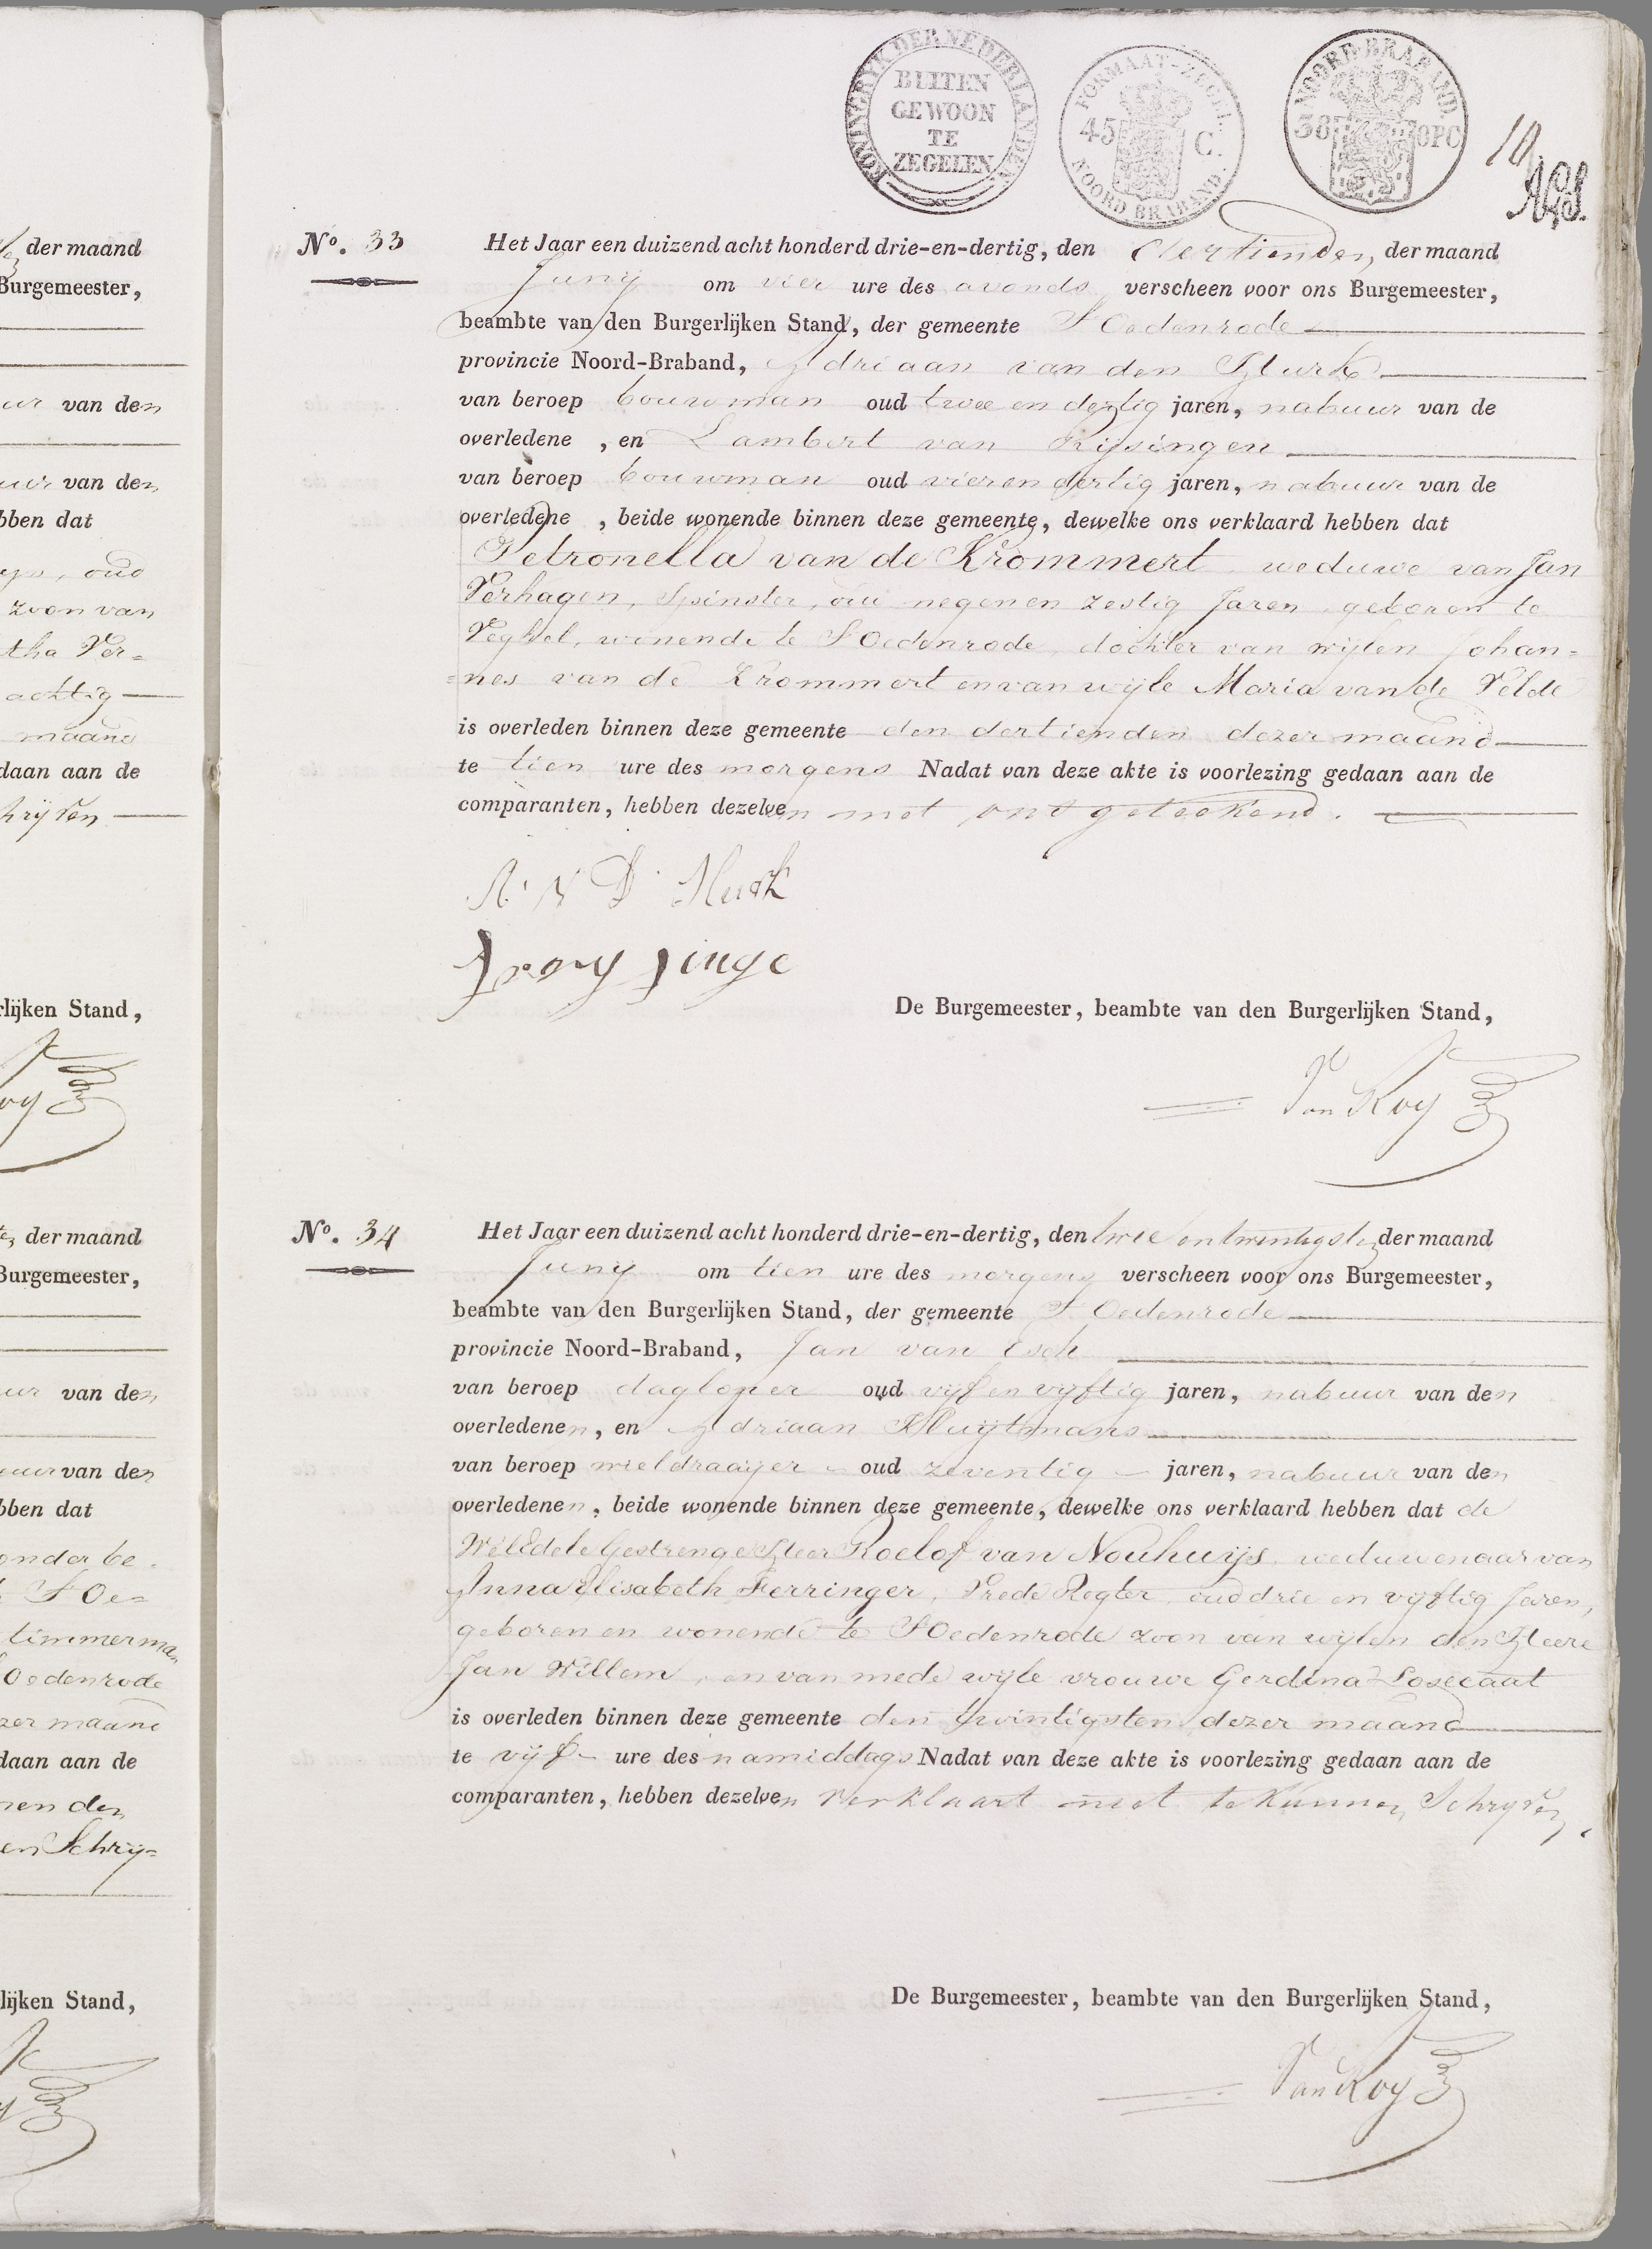 KONINGRYK DER NEDERLANDEN
BUITEN
GEWOON
TE
ZEGELEN
FORMAAT-ZEGEL
45 C.
NOORD BRABAND.
NOORD-BRABAND
38 OPC
10
No. 33 Het Jaar een duizend acht honderd drie-en-dertig, den dertienden der maand
Juny om vier ure des avonds verscheen voor ons Burgemeester,
beambte van den Burgerlijken Stand, der gemeente St Oedenrode
provincie Noord-Braband, Adriaan van den Hurk
van beroep bouwman oud twee en dertig jaren, nabuur van de
overledene , en Lambert van Rijsingen
van beroep bouwman oud vier en dertig jaren, nabuur van de
overledene , beide wonende binnen deze gemeente, dewelke ons verklaard hebben dat
Petronella van de Krommert weduwe van Jan
Verhagen, Spinster, oud negen en zestig Jaren geboren te
Veghel, wonende te St Oedenrode, dochter van wijlen Johan=
=nes van de Krommert en van wijle Maria van de Velde
is overleden binnen deze gemeente den dertienden dezer maand
te tien ure des morgens Nadat van deze akte is voorlezing gedaan aan de
comparanten, hebben dezelven met ons geteekend.
A. V D. Hurk
De Burgemeester, beambte van den Burgerlijken Stand,
Van Roy
No. 34 Het Jaar een duizend acht honderd drie-en-dertig, den twee en twintigsten der maand
Juny om tien ure des morgens verscheen voor ons Burgemeester,
beambte van den Burgerlijken Stand, der gemeente St Oedenrode
provincie Noord-Braband, Jan van Esch
van beroep dagloner oud vijf en vijftig jaren, nabuur van den
overledenen, en Adriaan Kluijtmans
van beroep wieldraaijer oud zeventig jaren, nabuur van den
overledenen, beide wonende binnen deze gemeente, dewelke ons verklaard hebben dat de
WelEdele Gestrenge Heer Roelof van Nouhuijs weduwenaar van
Anna Elisabeth Ferringer, Vrede Regter oud drie en vijftig Jaren,
geboren en wonende te St Oedenrode zoon van wijlen den Heere
Jan Willem, en van mede wijle vrouwe Gerdina Losecaat
is overleden binnen deze gemeente den twintigsten dezer maand
te vijf ure des namiddags Nadat van deze akte is voorlezing gedaan aan de
comparanten, hebben dezelven verklaart niet te kunnen Schryven,
De Burgemeester, beambte van den Burgerlijken Stand,
Van Roy